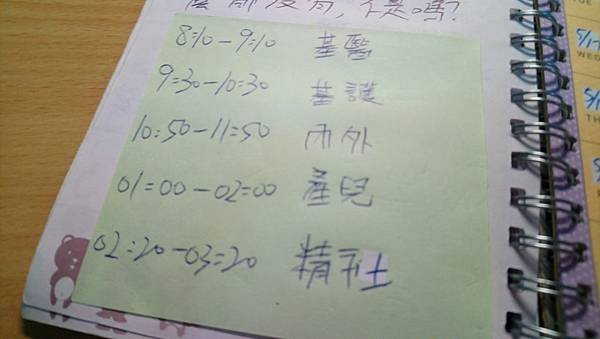 沒有，不是嗎？
8:10-9:10 基醫
9:30-10:30 基護
10:50-11:50 內外
01:00-02:00 產兒
02:20-03:20 精社